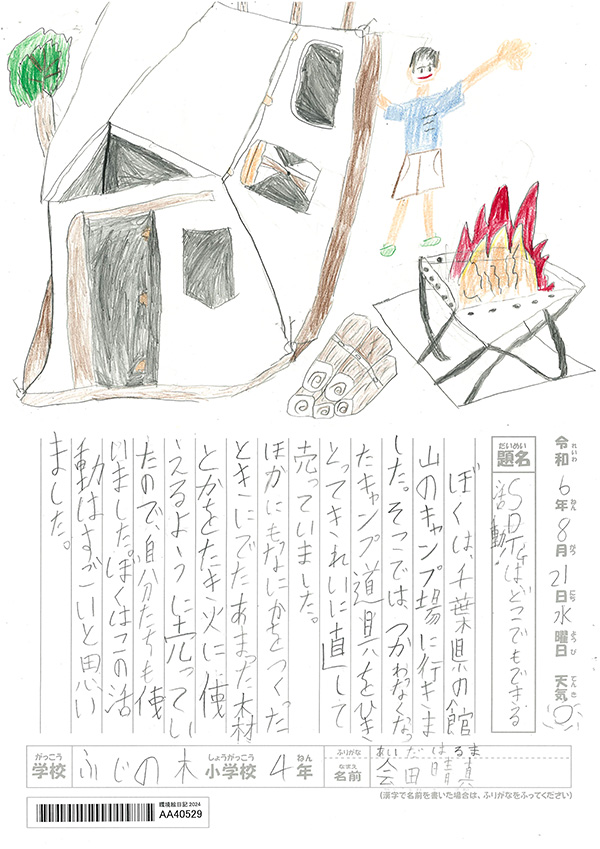 令和6年8月21日水曜日 天気
れいわ ねん がつ にち ようび てんき
題名
だいめい
SDGsはどこでもできる
活動
ぼくは、千葉県の館
山のキャンプ場に行きま
した。そこでは、つかわなくなっ
たキャンプ道具をひき
とってきれいに直して
売っていました。
ほかにもなにかをつくった
ときにでたあまった木材
とかをたき火に使
えるように売ってい
たので、自分たちも使
いました。ぼくはこの活
動はすごいと思い
ました。
がっこう しょうがっこう ねん
学校 ふじの木 小学校 4年
ふりがな あいだはるま
なまえ
名前 会田晴真
(漢字で名前を書いた場合は、ふりがなをふってください)
環境絵日記2024
AA40529